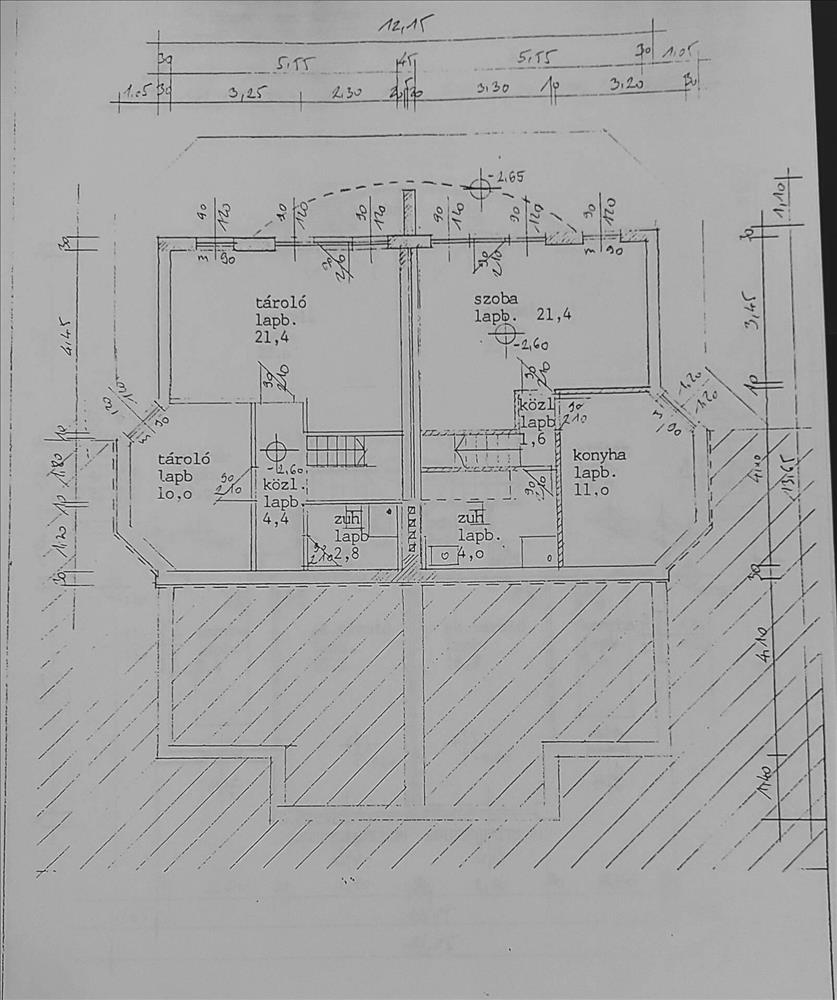 12,15
30
5,55
45
5,55
30
1,05
1.05
30
3,25
2,30
3,30
10
3,20
30
-2,65
90
120
90
120
90
120
90
120
90
120
90
120
m 90
90
210
90
210
m 90
1,10
30
30
tároló
lapb.
21,4
szoba
lapb. 21,4
-2,60
4,45
3,45
90
210
90
210
10
1,20
1,20
m
90
m
90
közl
lapb
1,6
90
210
10
tároló
lapb
10,0
-2,60
közl.
lapb.
4,4
90
210
90
210
konyha
lapb.
11,0
1,80
10
1,20
30
4,10
13,65
zuh
lapb
2,8
90
210
zuh
lapb.
4,0
30
4,10
1,40